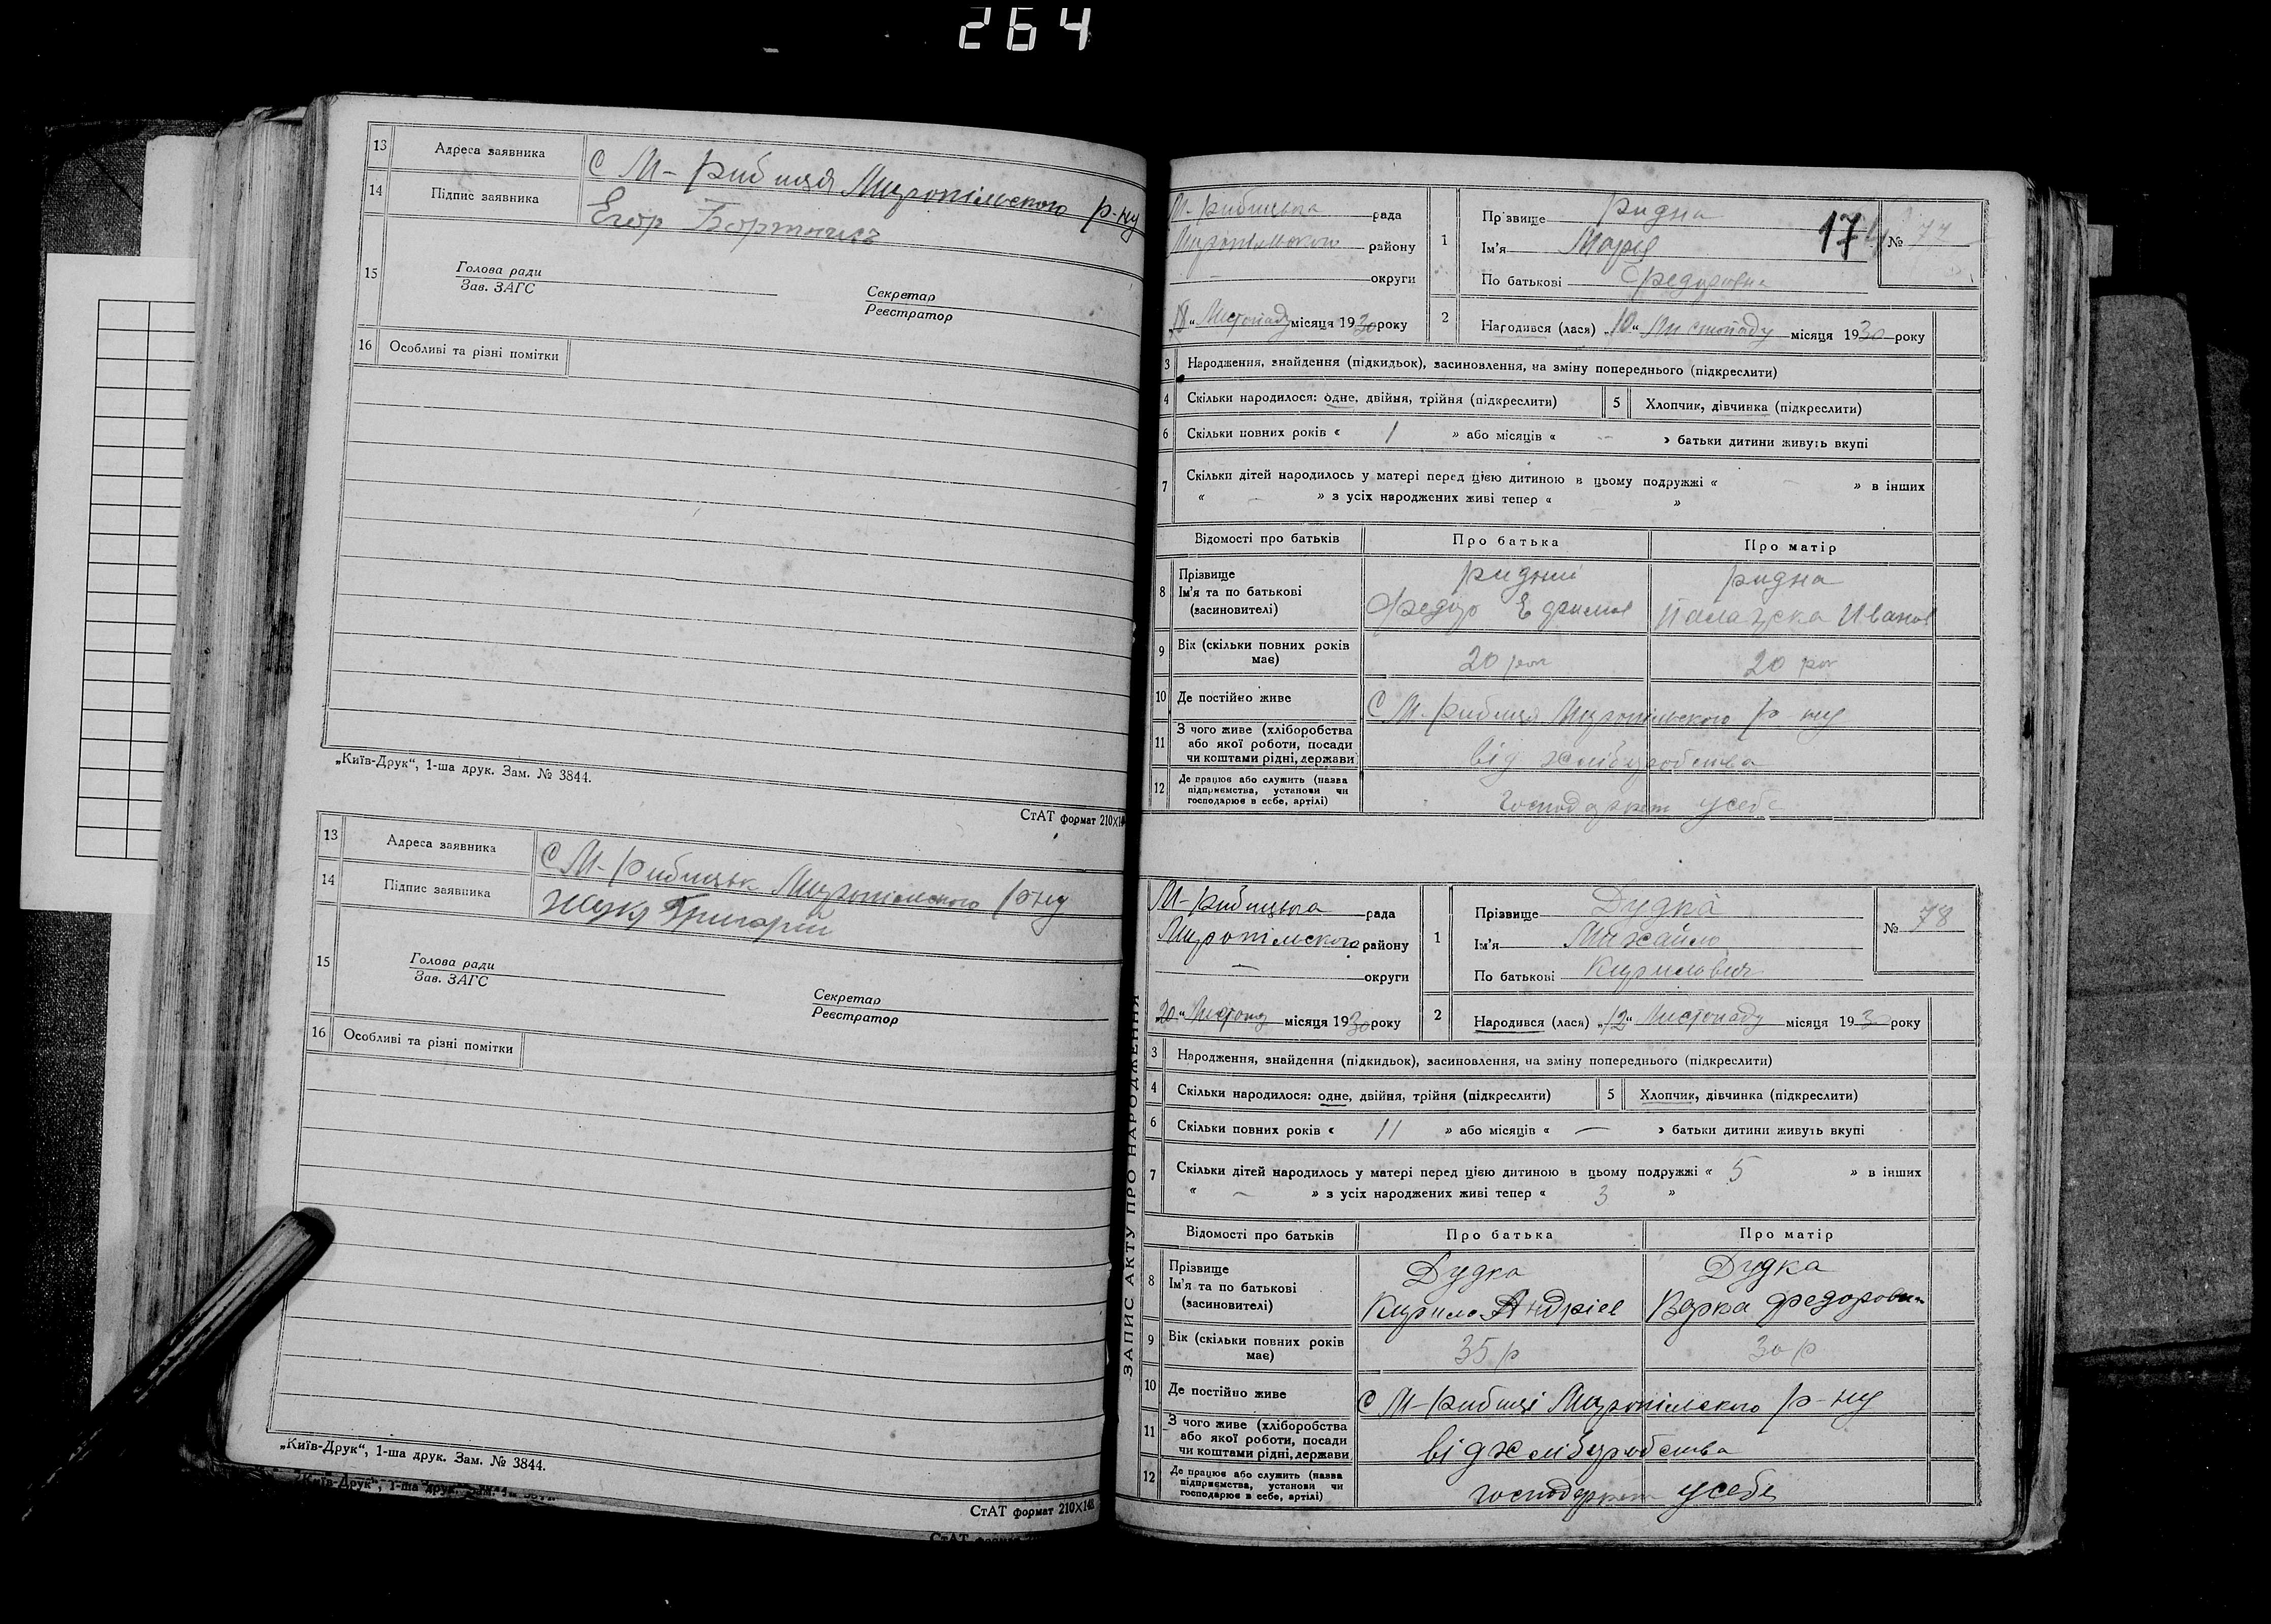 264
13 Адреса заявника С М-рибиця Миропільського р-ну
14 Підпис заявника Егор
15 Голова ради
Зав. ЗАГС
Секретар
Реєстратор
16 Особливі та різні помітки
„Київ-Друк“, 1-ша друк. Зам. № 3844.
СтАТ формат 210X14
13 Адреса заявника С М-рибицьк Миропілського р-ну
14 Підпис заявника Жук Григорій
15 Голова ради
Зав. ЗАГС
Секретар
Реєстратор
16 Особливі та різні помітки
„Київ-Друк“, 1-ша друк. Зам. № 3844.
СтАТ формат 210X148
„Київ-Друк“, 1-ша друк. Зам.
ЗАПИС АКТУ ПРО НАРОДЖЕННЯ
М-рибицька рада
Миропільского району
— округи
18 „ Листопаду місяця 1930 року
1 Прізвище Ридна
Ім'я Марія
По батькові Федоровна
174
№ 77
2 Народився (лася) „10“ Листопаду місяця 1930 року
3 Народження, знайдення (підкидьок), засиновлення, на зміну попереднього (підкреслити)
4 Скільки народилося: одне, двійня, трійня (підкреслити) 5 Хлопчик, дівчинка (підкреслити)
6 Скільки повних років « 1 » або місяців « — » батьки дитини живуть вкупі
7 Скільки дітей народилось у матері перед цією дитиною в цьому подружжі « — » в інших
« — » з усіх народжених живі тепер « »
Відомості про батьків Про батька Про матір
8 Прізвище ридний ридна
Ім'я та по батькові Федор Ефимов Палажка Иванов
(засновителі)
9 Вік (скільки повних років має) 20 рок 20 рок
10 Де постійно живе С М-рибиця Миропільского р-ну
11 З чого живе (хліборобства або якої роботи, посади чи коштами рідні, держави) від хліборобства
12 Де працює або служить (назва підприємства, установи чи господарює в себе, артілі) усебе
М-рибицька рада
Миропілского району
— округи
20 „ місяця 1930 року
1 Прізвище Дудка
Ім'я Михайло
По батькові Кирилович
№ 78
2 Народився (лася) „12“ Листопаду місяця 1930 року
3 Народження, знайдення (підкидьок), засиновлення, на зміну попереднього (підкреслити)
4 Скільки народилося: одне, двійня, трійня (підкреслити) 5 Хлопчик, дівчинка (підкреслити)
6 Скільки повних років « 11 » або місяців « — » батьки дитини живуть вкупі
7 Скільки дітей народилось у матері перед цією дитиною в цьому подружжі « 5 » в інших
« — » з усіх народжених живі тепер « 3 »
Відомості про батьків Про батька Про матір
8 Прізвище Дудка Дудка
Ім'я та по батькові Кирило Андрієв Варка Федоровн
(засновителі)
9 Вік (скільки повних років має) 35 р 30 р
10 Де постійно живе С М-рибиці Миропілского р-ну
11 З чого живе (хліборобства або якої роботи, посади чи коштами рідні, держави) від хліборобства
12 Де працює або служить (назва підприємства, установи чи господарює в себе, артілі) усебе